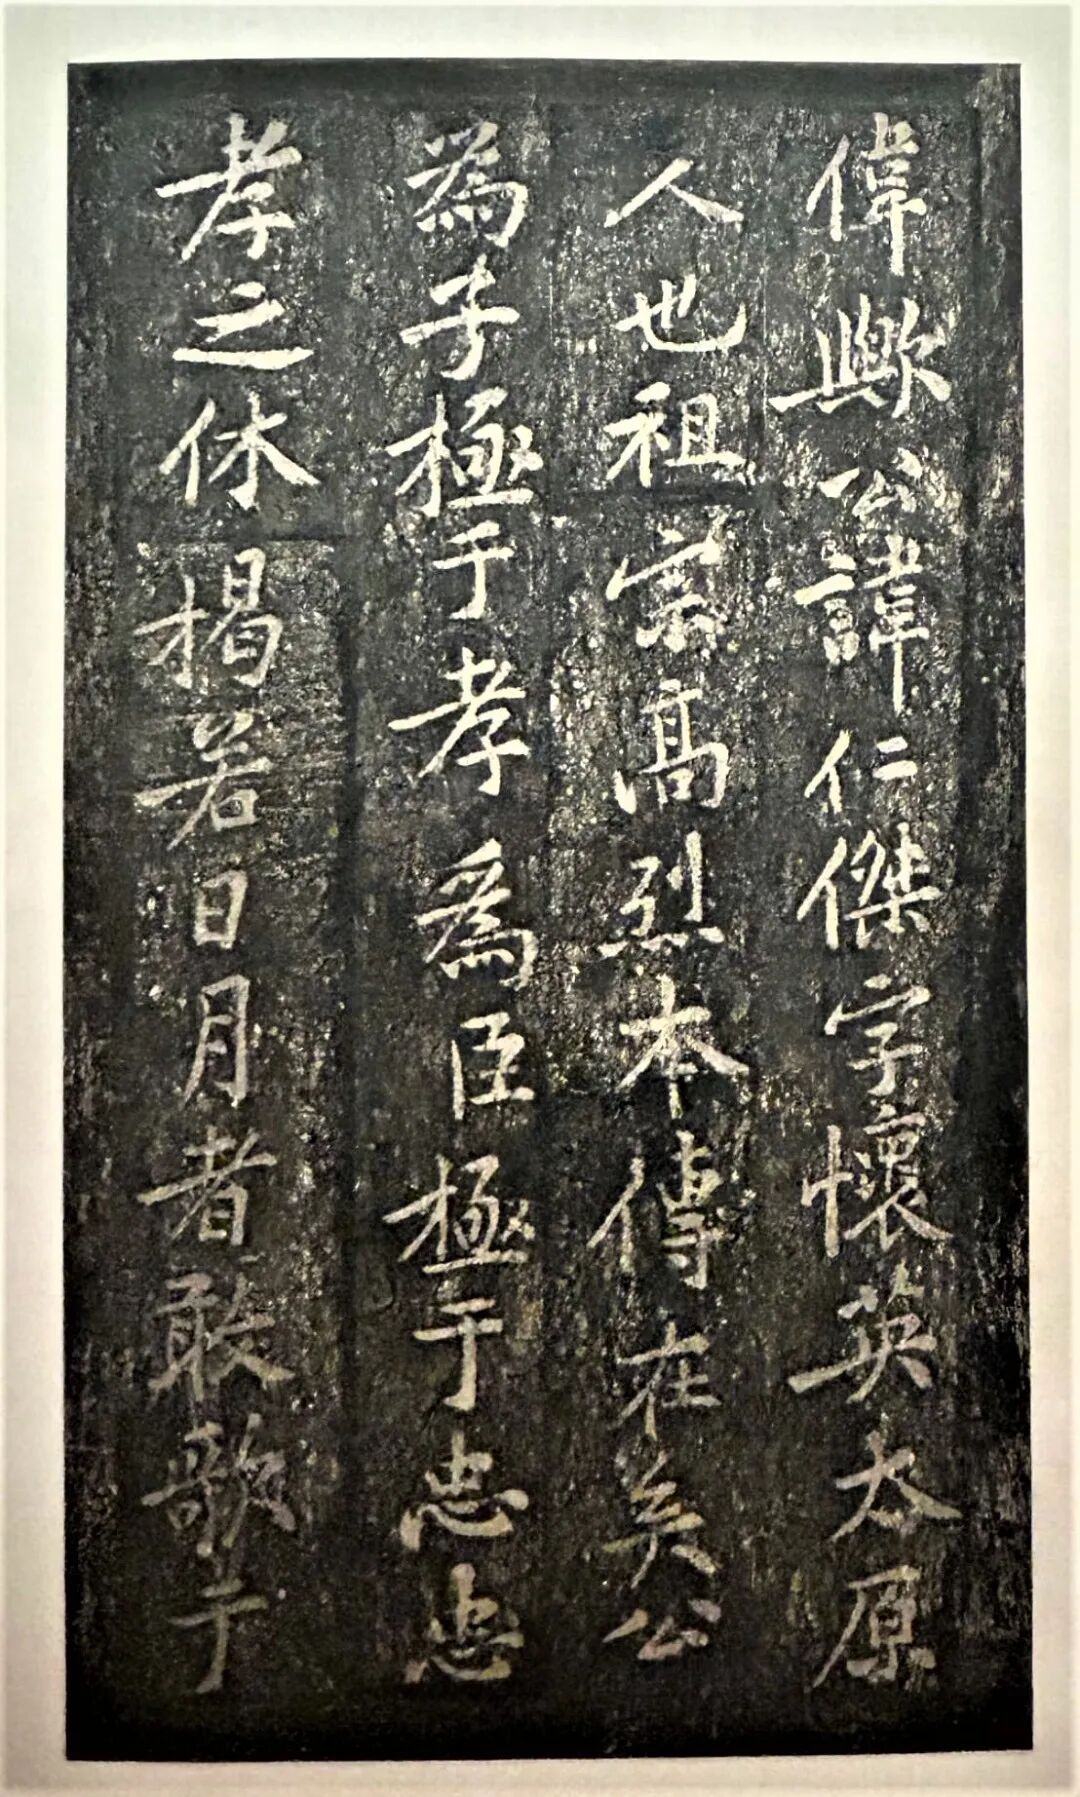 偉歟公諱仁傑字懷英太原
人也祖宗高烈本傳在矣公
為子極于孝為臣極于忠忠
孝之休揭若日月者敢歌于